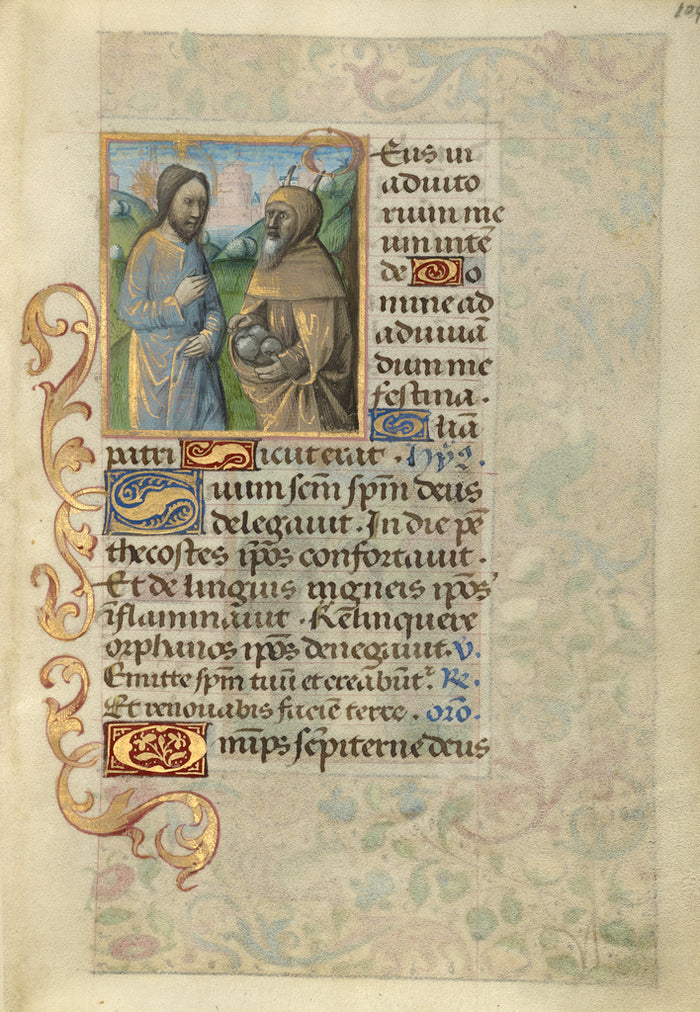 Deus in
adiuto
rium me
um intē
de Do
mine ad
adiuuā
dum me
festina .
Gliā
patri Sicut erat . Hy̅s .
Suum sc̅m sp̅m deus
delegauit . In die pē
thecostes ip̅os confortauit .
Et de linguis ingneis ip̅os
īflammauit . Relinquere
orphanos ip̅os denegauit . V̅ .
Emitte sp̅m tuū et creabūt᷑ . Re .
Et renouabis faciē terre . or̅o .
Omīps se̅piterne deus